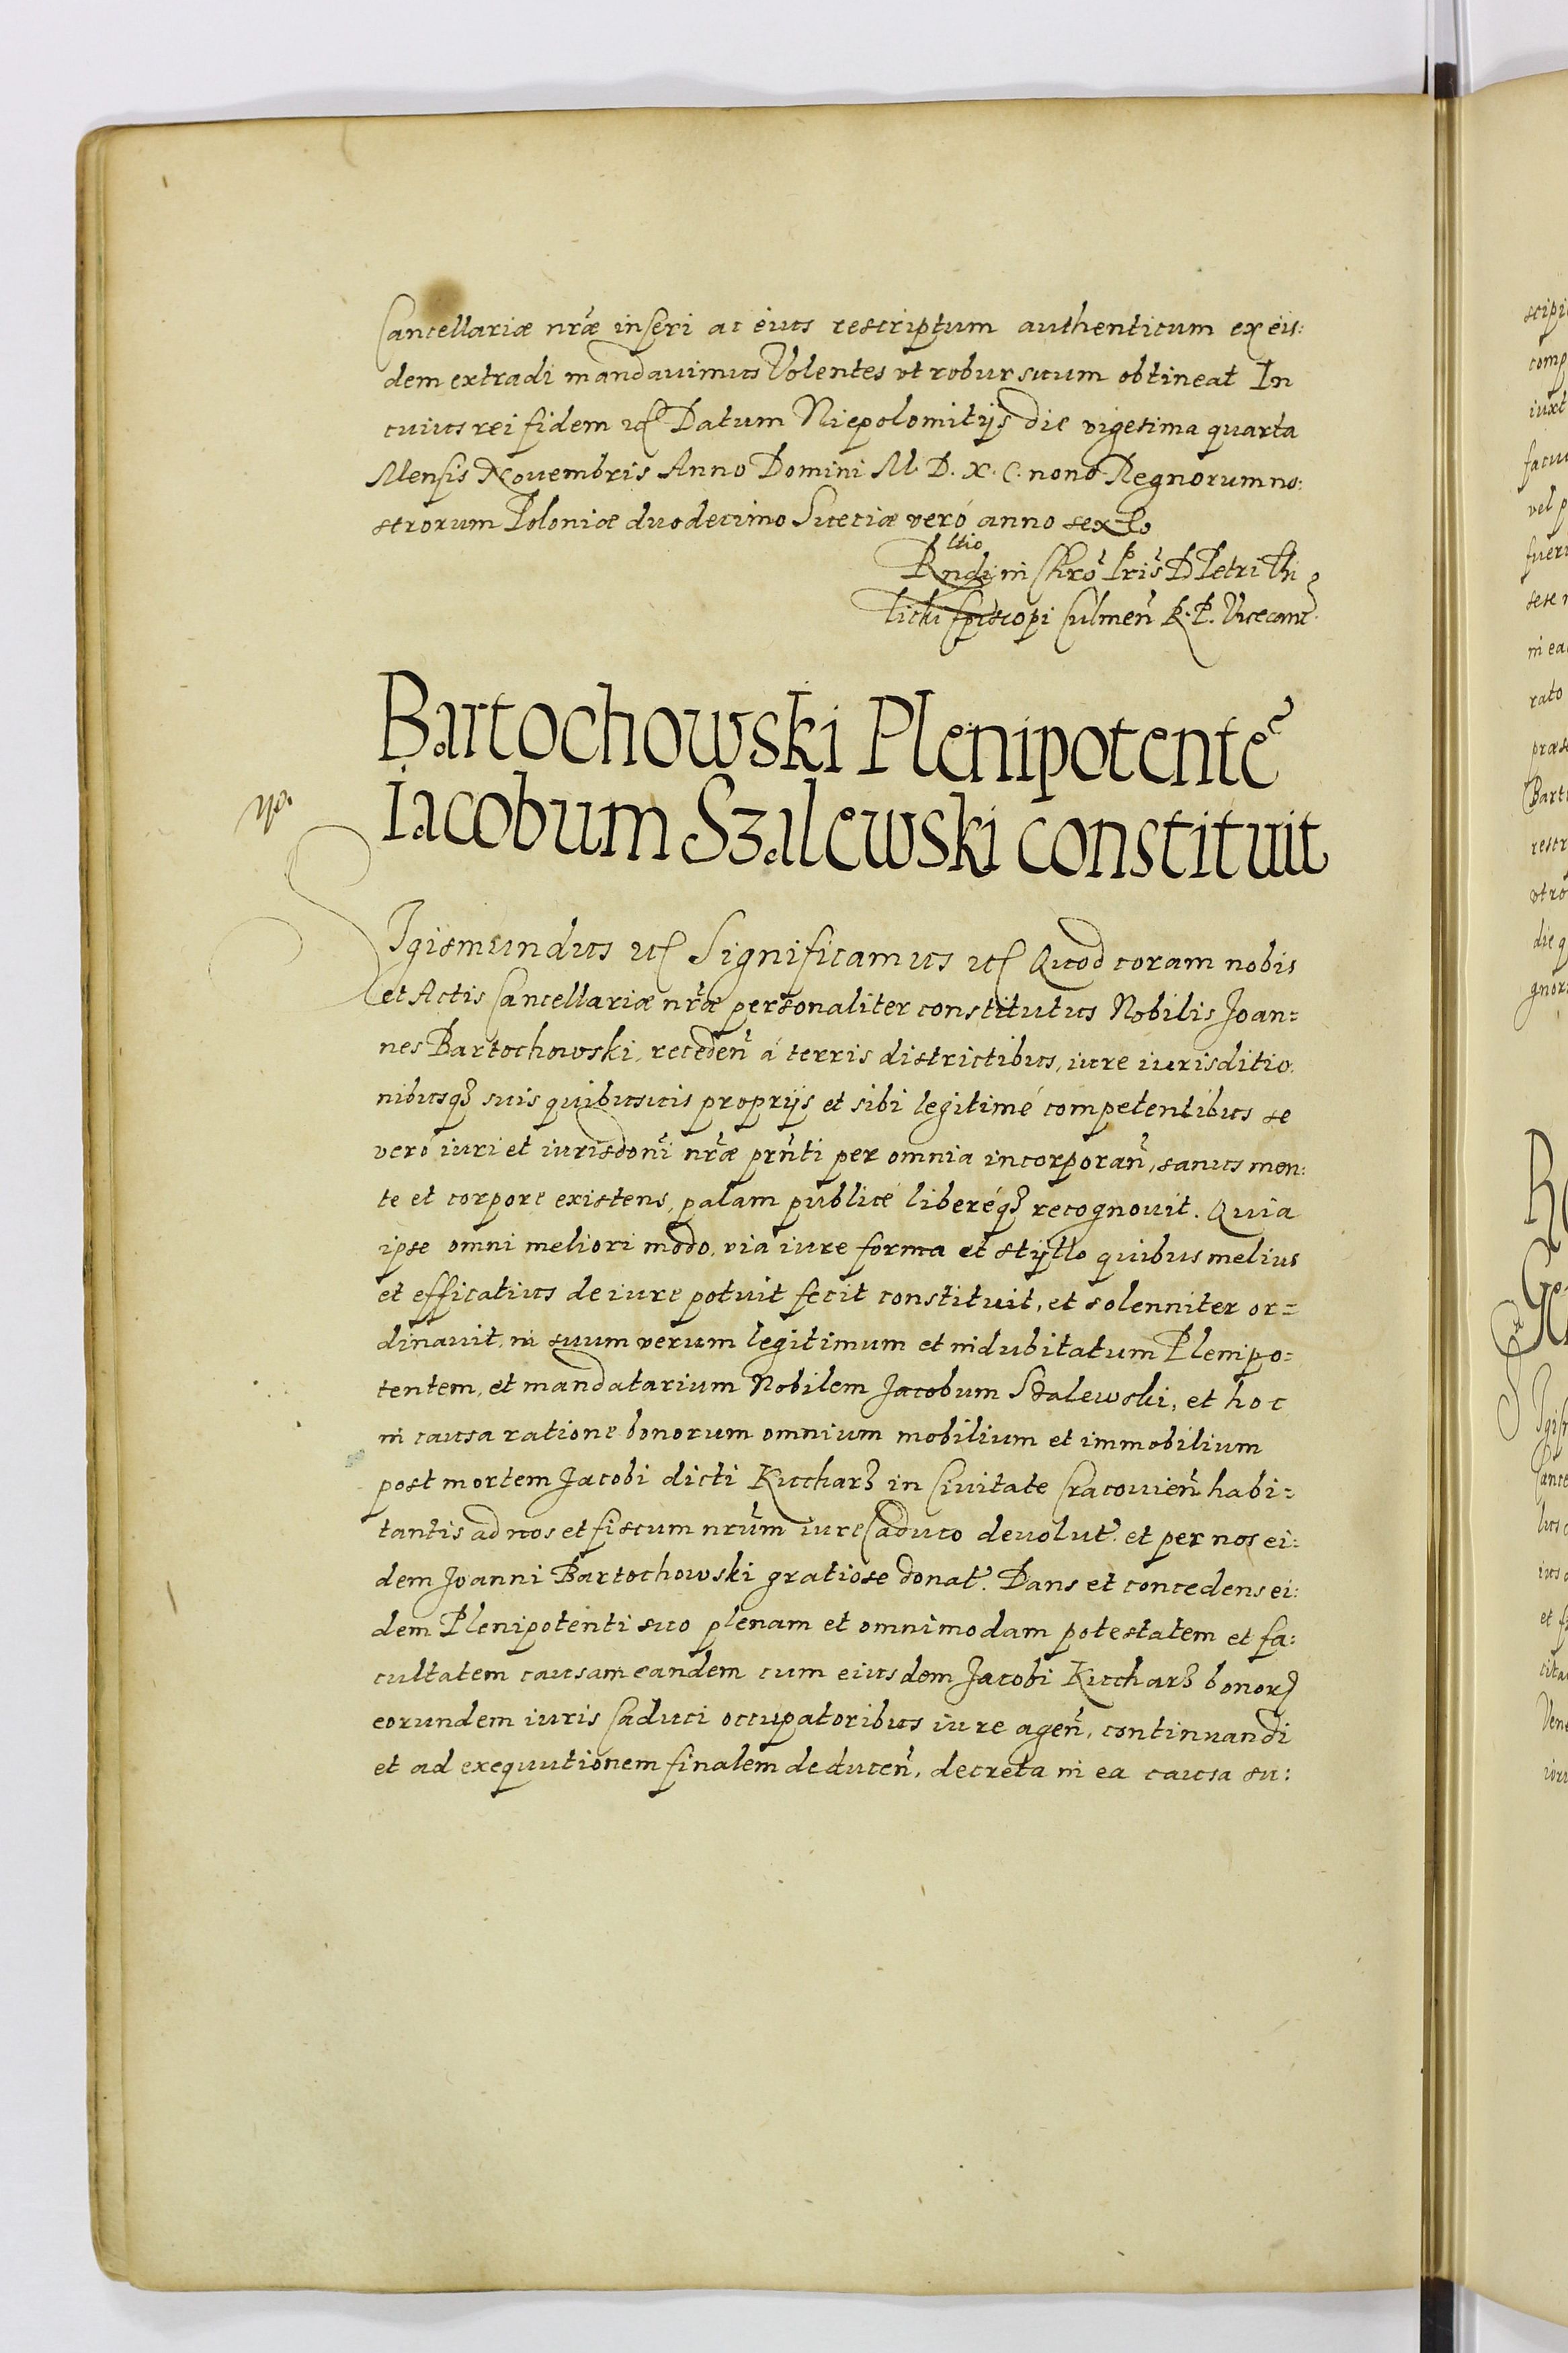 Cancellariæ nr̃æ inseri ac eius rescriptum authenticum ex eis:
dem extradi mandauimus Volentes vt robur suum obtineat In
cuius rei fidem etc Datum Niepolomitijs die vigesima quarta
Mensis Nouembris Anno Domini M. D. X. C. nono Regnorum no:
strorum Poloniæ duodecimo Sueciæ veró anno sexto
ltio
Rndi in Chrõ Pris̃ D Petri Thi
licki Episcopi Culmeñ R. P. Vicecanc̃.
Bartochowski Plenipotentẽ
Iacobum Szalewski constituit
SIgismundus etc Significamus etc Quod coram nobis
et Actis Cancellariæ nr̃æ personaliter constitutus Nobilis Joan=
nes Bartochowski, recedeñ á terris districtibus, iure iurisditio
nibusq₃ suis quibusuis proprijs et sibi legitimé competentibus se
veró iuri et iurisdoñi nr̃æ prñti per omnia incorporañ, sanus men:
te et corpore existens, palam publicé liberéq₃ recognouit. Quia
ipse omni meliori modo, via iure forma et stÿllo quibus melius
et efficatius de iure potuit fecit constituit, et solenniter or=
dinauit, in suum verum legitimum et indubitatum Plenipo=
tentem, et mandatarium Nobilem Jacobum Szalewski, et hoc
in causa ratione bonorum omnium mobilium et immobilium
post mortem Jacobi dicti Kuchar₃ in Ciuitate Cracouieñ habi=
tantis ad nos et fiscum nrũm iure Caduco deuolut̃. et per nos ei:
dem Joanni Bartochowski gratiose donat̃. Dans et concedens ei:
dem Plenipotenti suo plenam et omnimodam potestatem et fa:
cultatem causam eandem cum eiusdem Jacobi Kuchar₃ bonorꝝ
eorundem iuris Caduci occupatoribus iure ageñ, continuandi
et ad exequutionem finalem deduceñ, decreta in ea causa su: